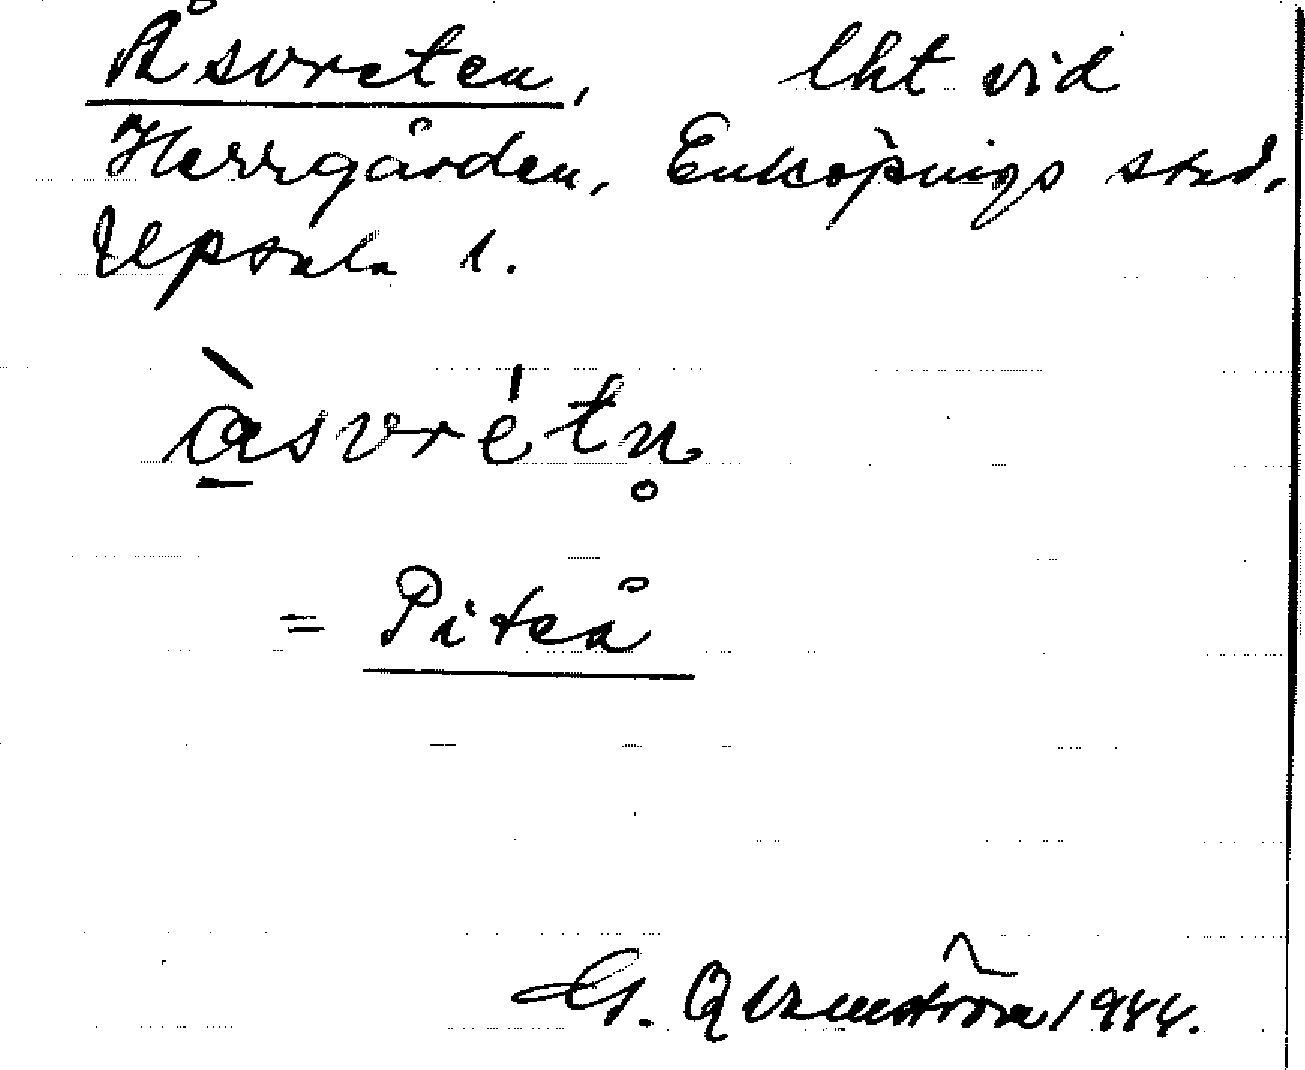 Åsvreten, lht vid
Herrgården, Enköpings stad,
Upsala l.
åsvrétn̥
= Piteå
G. Qvarnström 1944.